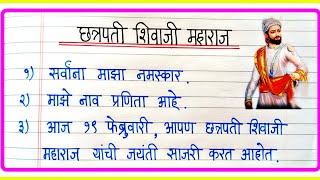 छत्रपती शिवाजी महाराज
१) सर्वांना माझा नमस्कार.
२) माझे नाव प्रणिता आहे.
३) आज १९ फेब्रुवारी, आपण छत्रपती शिवाजी
महाराज यांची जयंती साजरी करत आहोत.